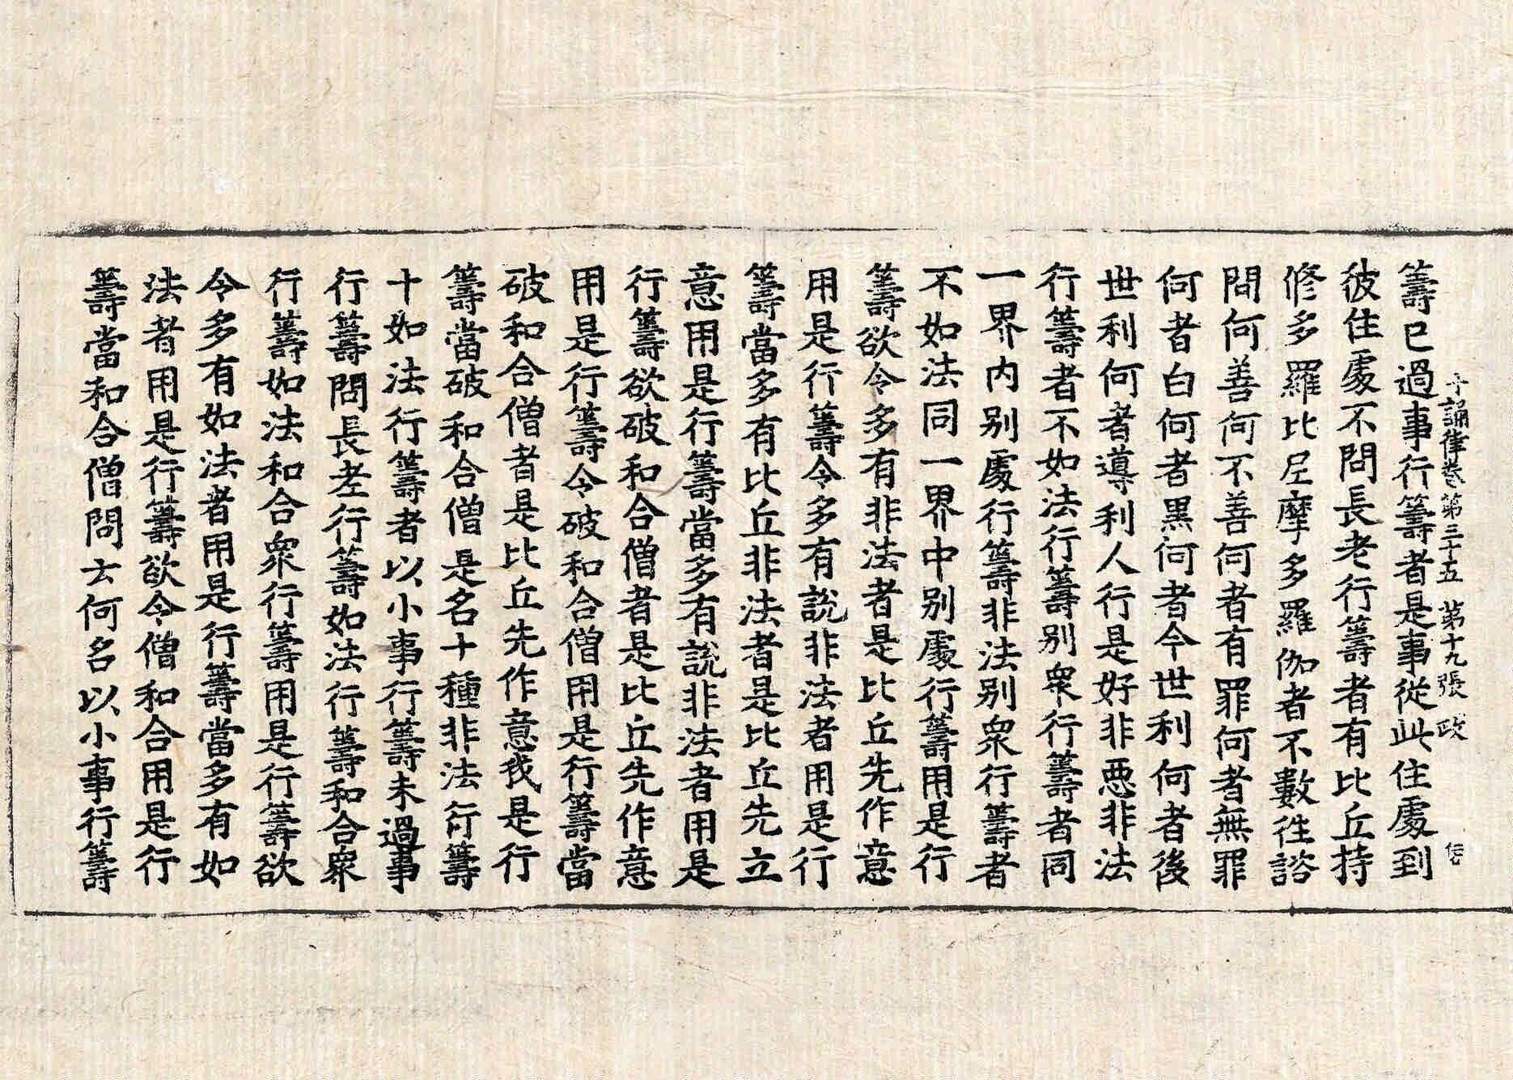 十誦律卷第三十五 第十九張 政
籌已過事行籌者是事從此住處到
彼住處不問長老行籌者有比丘持
修多羅比尼摩多羅伽者不數往諮
問何善何不善何者有罪何者無罪
何者白何者黑何者今世利何者後
世利何者導利人行是好非惡非法
行籌者不如法行籌別衆行籌者同
一界內別處行籌非法別衆行籌者
不如法同一界中別處行籌用是行
籌欲令多有非法者是比丘先作意
用是行籌令多有說非法者用是行
籌當多有比丘非法者是比丘先立
意用是行籌當多有說非法者用是
行籌欲破和合僧者是比丘先作意
用是行籌令破和合僧用是行籌當
破和合僧者是比丘先作意我是行
籌當破和合僧是名十種非法行籌
十如法行籌者以小事行籌未過事
行籌問長老行籌如法行籌和合衆
行籌如法和合衆行籌用是行籌欲
令多有如法者用是行籌當多有如
法者用是行籌欲令僧和合用是行
籌當和合僧問云何名以小事行籌